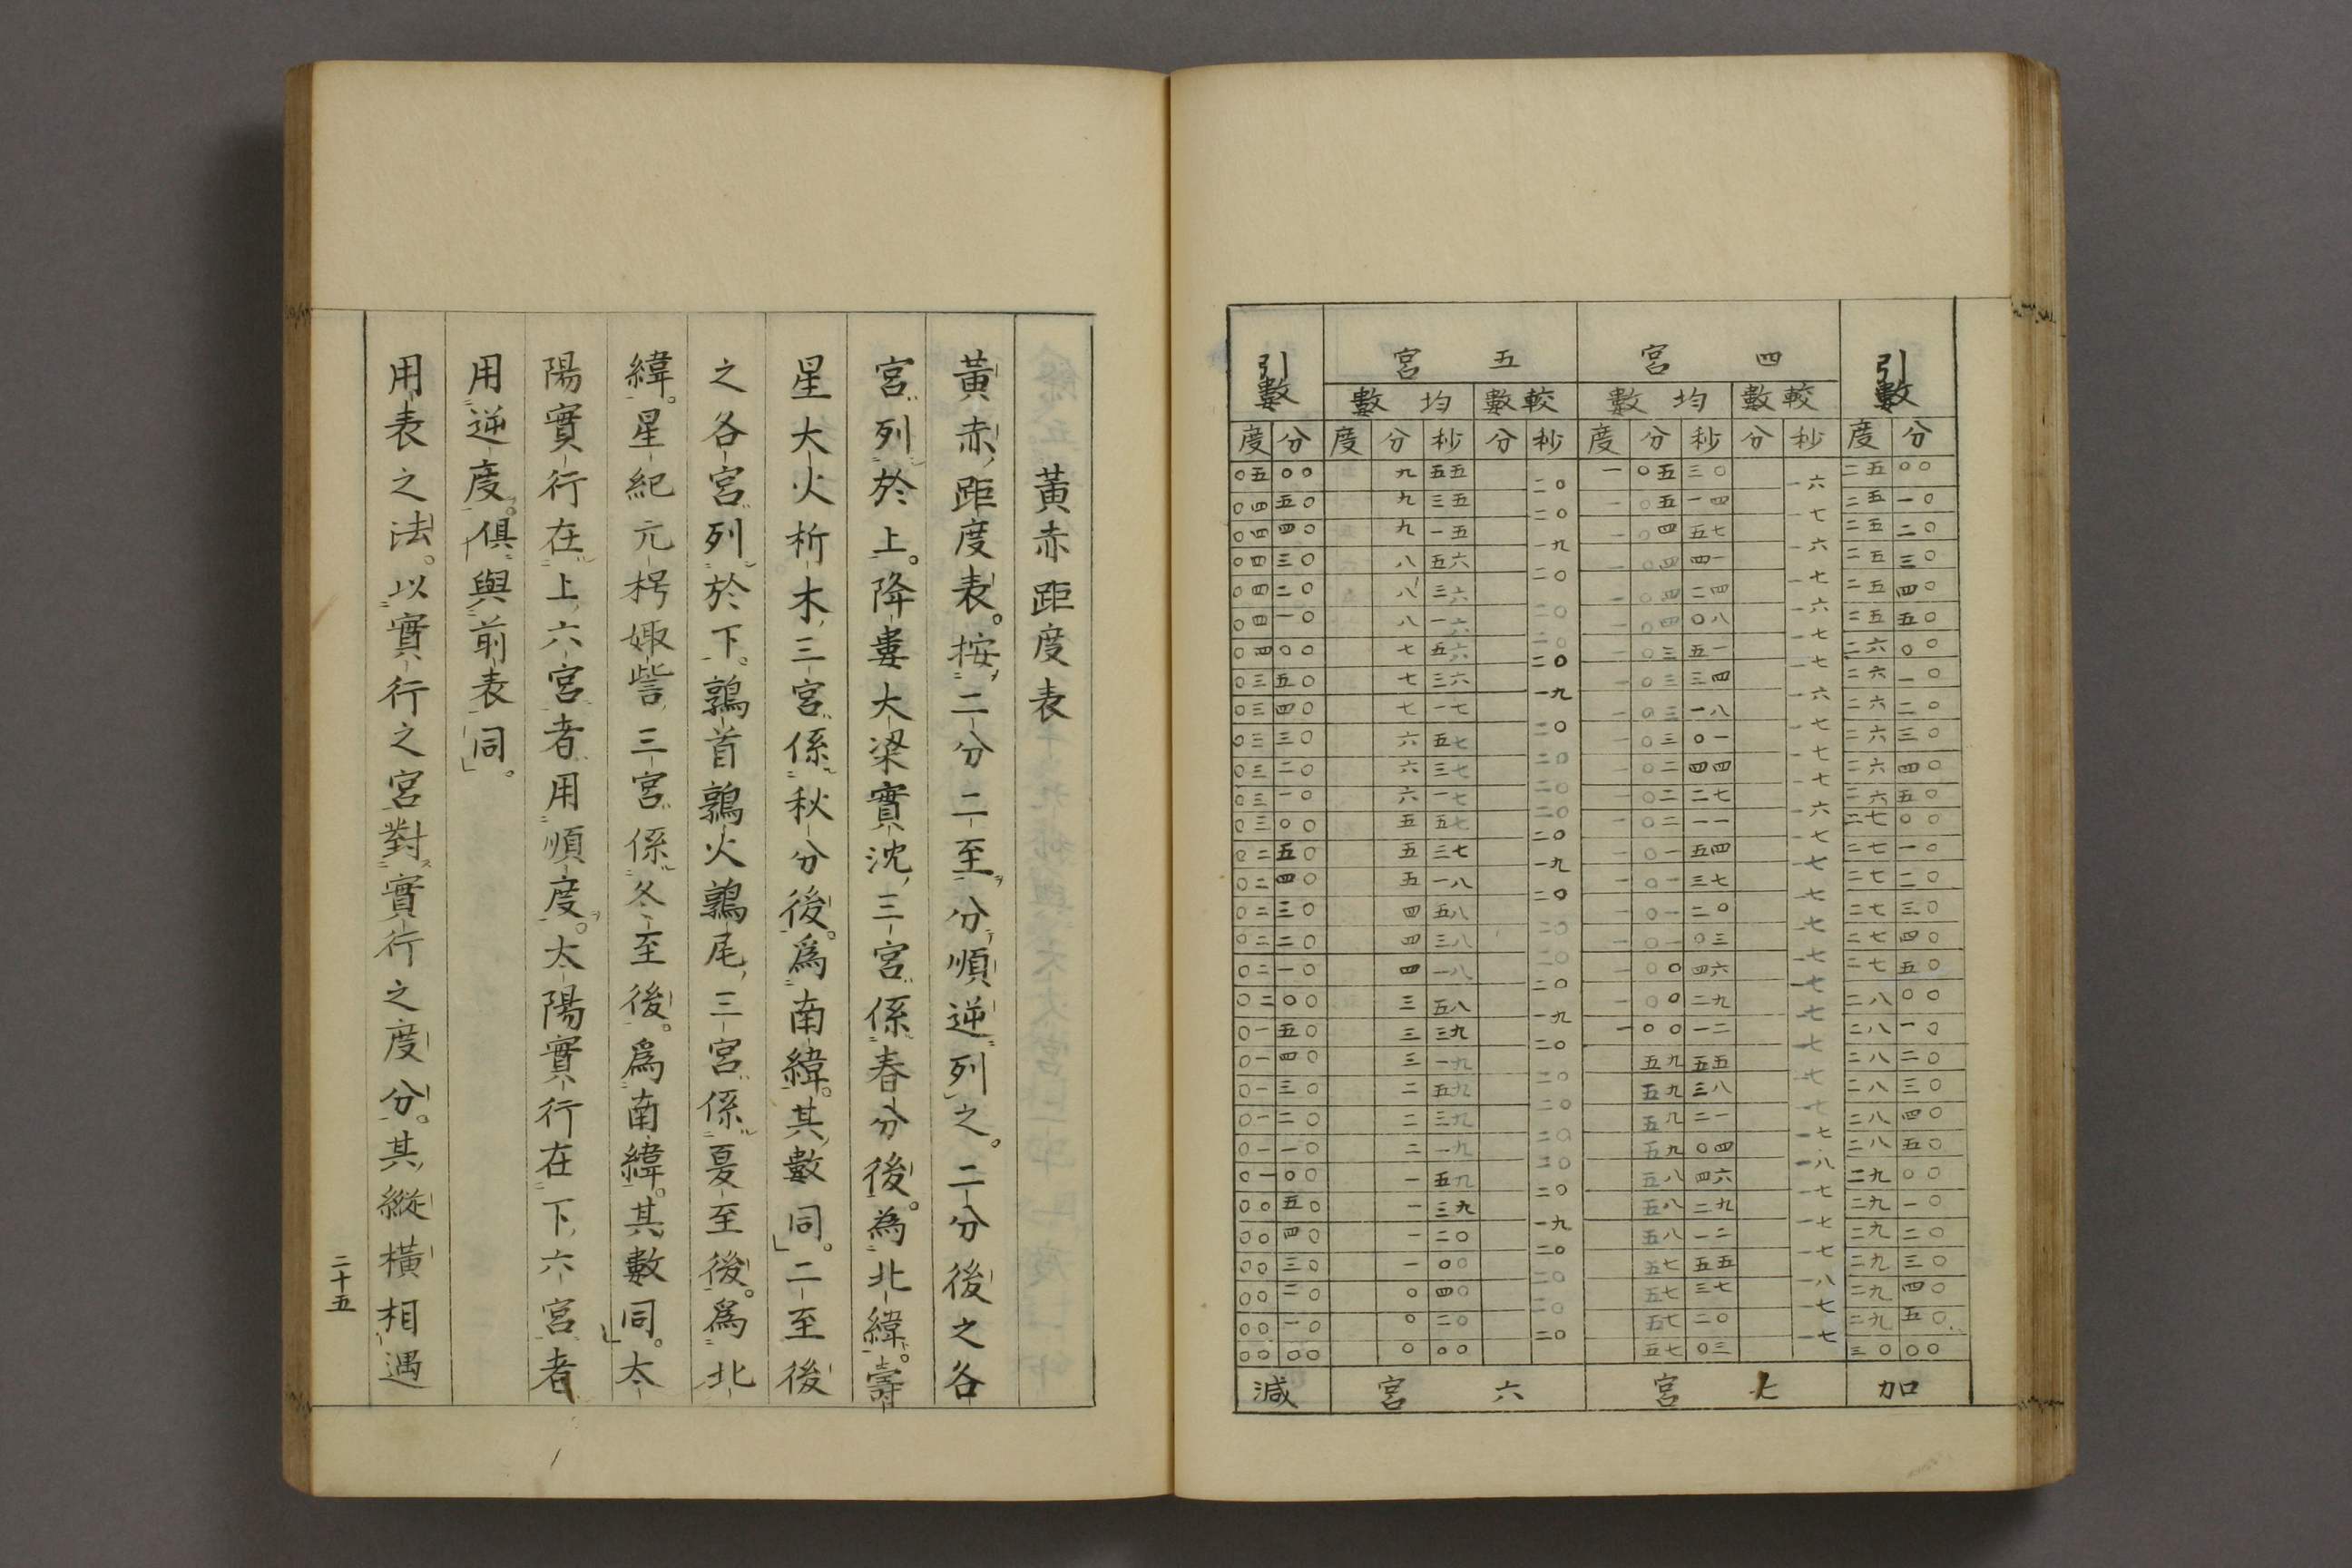 引數 四宮 五宮 引數
較數 均數 較數 均數
度 分 度 分 秒 分 秒 度 分 秒 分 秒 度 分
〇五 〇〇 九 五五 二〇 一 〇五 三〇 一六 二五 〇〇
〇四 五〇 九 三五 二〇 一 〇五 一四 一七 二五 一〇
〇四 四〇 九 一五 一九 一 〇四 五七 一六 二五 二〇
〇四 三〇 八 五六 二〇 一 〇四 四一 一七 二五 三〇
〇四 二〇 八 三六 二〇 一 〇四 二四 一六 二五 四〇
〇四 一〇 八 一六 二〇 一 〇四 〇八 一七 二五 五〇
〇四 〇〇 七 五六 二〇 一 〇三 五一 一七 二六 〇〇
〇三 五〇 七 三六 一九 一 〇三 三四 一六 二六 一〇
〇三 四〇 七 一七 二〇 一 〇三 一八 一七 二六 二〇
〇三 三〇 六 五七 二〇 一 〇三 〇一 一七 二六 三〇
〇三 二〇 六 三七 二〇 一 〇二 四四 一七 二六 四〇
〇三 一〇 六 一七 二〇 一 〇二 二七 一六 二六 五〇
〇三 〇〇 五 五七 二〇 一 〇二 一一 一七 二七 〇〇
〇二 五〇 五 三七 一九 一 〇一 五四 一七 二七 一〇
〇二 四〇 五 一八 二〇 一 〇一 三七 一七 二七 二〇
〇二 三〇 四 五八 二〇 一 〇一 二〇 一七 二七 三〇
〇二 二〇 四 三八 二〇 一 〇一 〇三 一七 二七 四〇
〇二 一〇 四 一八 二〇 一 〇〇 四六 一七 二七 五〇
〇二 〇〇 三 五八 一九 一 〇〇 二九 一七 二八 〇〇
〇一 五〇 三 三九 二〇 一 〇〇 一二 一七 二八 一〇
〇一 四〇 三 一九 二〇 五九 五五 一七 二八 二〇
〇一 三〇 二 五九 二〇 五九 三八 一七 二八 三〇
〇一 二〇 二 三九 二〇 五九 二一 一七 二八 四〇
〇一 一〇 二 一九 二〇 五九 〇四 一八 二八 五〇
〇一 〇〇 一 五九 二〇 五八 四六 一七 二九 〇〇
〇〇 五〇 一 三九 一九 五八 二九 一七 二九 一〇
〇〇 四〇 一 二〇 二〇 五八 一二 一七 二九 二〇
〇〇 三〇 一 〇〇 二〇 五七 五五 一八 二九 三〇
〇〇 二〇 〇 四〇 二〇 五七 三七 一七 二九 四〇
〇〇 一〇 〇 二〇 二〇 五七 二〇 一七 二九 五〇
〇〇 〇〇 〇 〇〇 五七 〇三 三〇 〇〇
加 七宮 六宮 減
黃赤距度表
黃赤距度表。按二分二至分順逆列之。二分後之各
宮列於上。降婁大梁實沈三宮係春分後。為北緯。壽
星大火析木三宮係秋分後。爲南緯。其數同。二至後
之各宮列於下。鶉首鶉火鶉尾三宮係夏至後。爲北
緯。星紀元枵娵訾三宮係冬至後。爲南緯。其數同。太
陽實行在上六宮者用順度。太陽實行在下六宮者
用逆度。俱與前表同。
用表之法。以實行之宮對實行之度分。其縱橫相遇
二十五